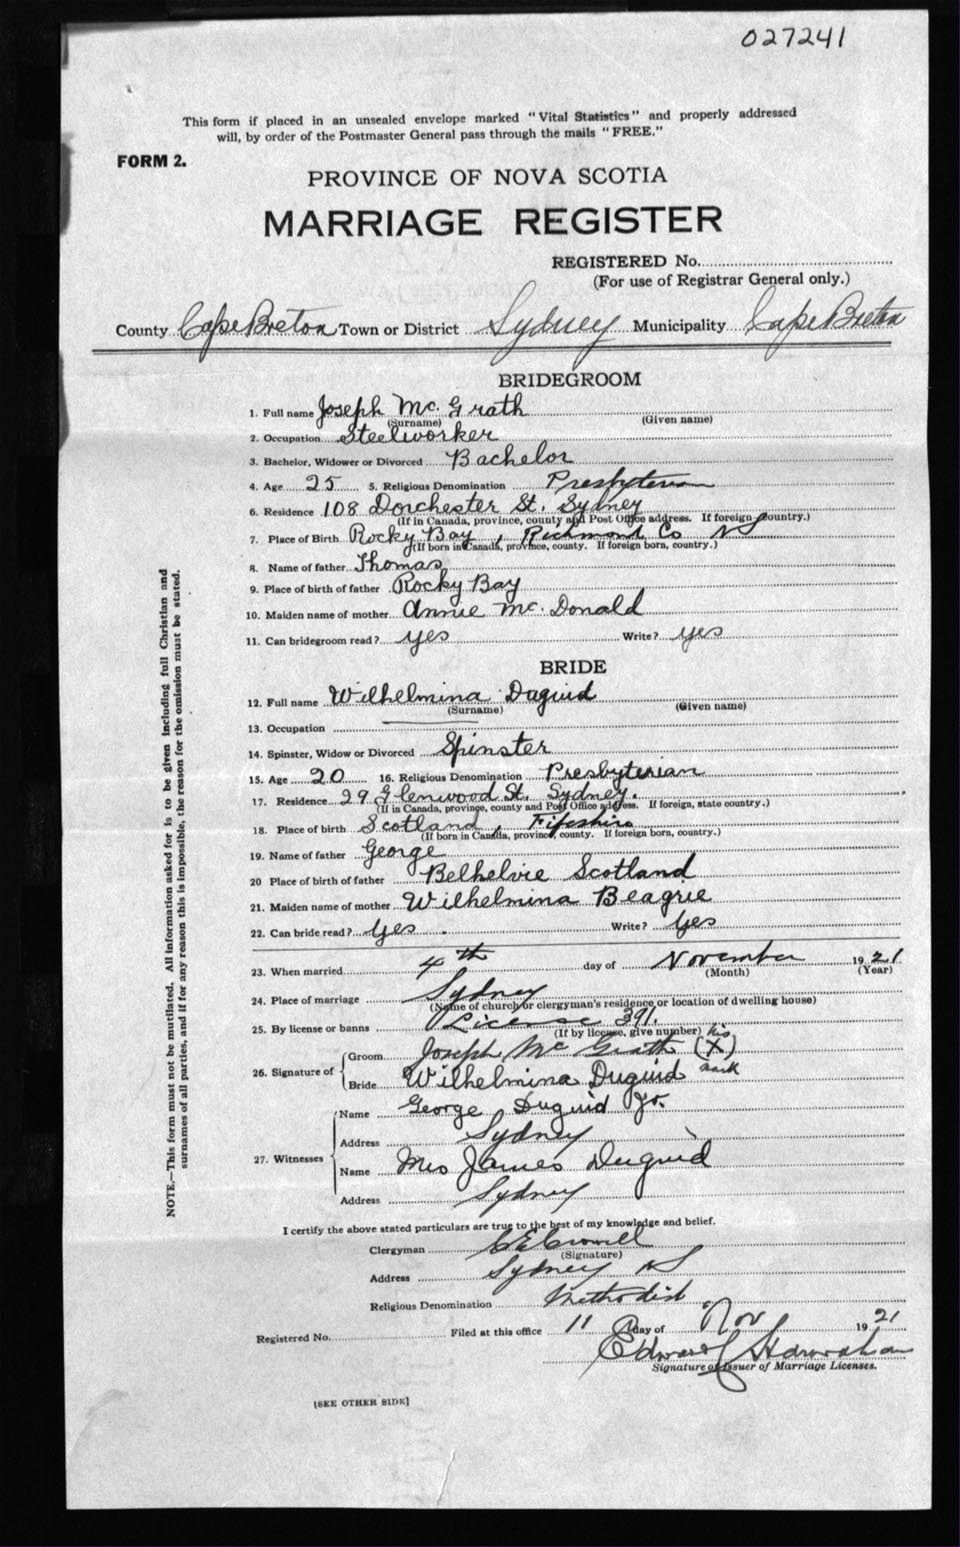 027241
This form if placed in an unsealed envelope marked "Vital Statistics" and properly addressed
will, by order of the Postmaster General pass through the mails "FREE."
FORM 2.
PROVINCE OF NOVA SCOTIA
MARRIAGE REGISTER
REGISTERED No.
(For use of Registrar General only.)
County Cape Breton Town or District Sydney Municipality Cape Breton
BRIDEGROOM
1. Full name Joseph Mc. Grath
(Surname) (Given name)
2. Occupation Steelworker
3. Bachelor, Widower or Divorced Bachelor
4. Age 25 5. Religious Denomination Presbyterian
6. Residence 108 Dorchester St. Sydney
(If in Canada, province, county and Post Office address. If foreign country.)
7. Place of Birth Rocky Bay, Richmond Co NS
(If born in Canada, province, county. If foreign born, country.)
8. Name of father Thomas
9. Place of birth of father Rocky Bay
10. Maiden name of mother Annie Mc. Donald
11. Can bridegroom read? yes Write? yes
BRIDE
12. Full name Wilhelmina Duguid
(Surname) (Given name)
13. Occupation
14. Spinster, Widow or Divorced Spinster
15. Age 20 16. Religious Denomination Presbyterian
17. Residence 29 Glenwood St. Sydney.
(If in Canada, province, county and Post Office address. If foreign, state country.)
18. Place of birth Scotland, Fifeshire
(If born in Canada, province, county. If foreign born, country.)
19. Name of father George
20 Place of birth of father Belhelvie Scotland
21. Maiden name of mother Wilhelmina Beagrie
22. Can bride read? Yes. Write? Yes
23. When married 4th day of November 1921
(Month) (Year)
24. Place of marriage Sydney
(Name of church or clergyman's residence or location of dwelling house)
25. By license or banns License 391.
(If by license, give number)
his
26. Signature of Groom Joseph Mc Grath (X)
mark
Bride Wilhelmina Duguid
27. Witnesses Name George Duguid Jr.
Address Sydney
Name Mrs James Duguid
Address Sydney
I certify the above stated particulars are true to the best of my knowledge and belief.
Clergyman C E Crowell
(Signature)
Address Sydney NS
Religious Denomination Methodist
Registered No. Filed at this office 11 day of Nov 1921
Signature of Issuer of Marriage Licenses.
[SEE OTHER SIDE]
NOTE.—This form must not be mutilated. All information asked for is to be given including full Christian and
surnames of all parties, and if for any reason this is impossible, the reason for the omission must be stated.